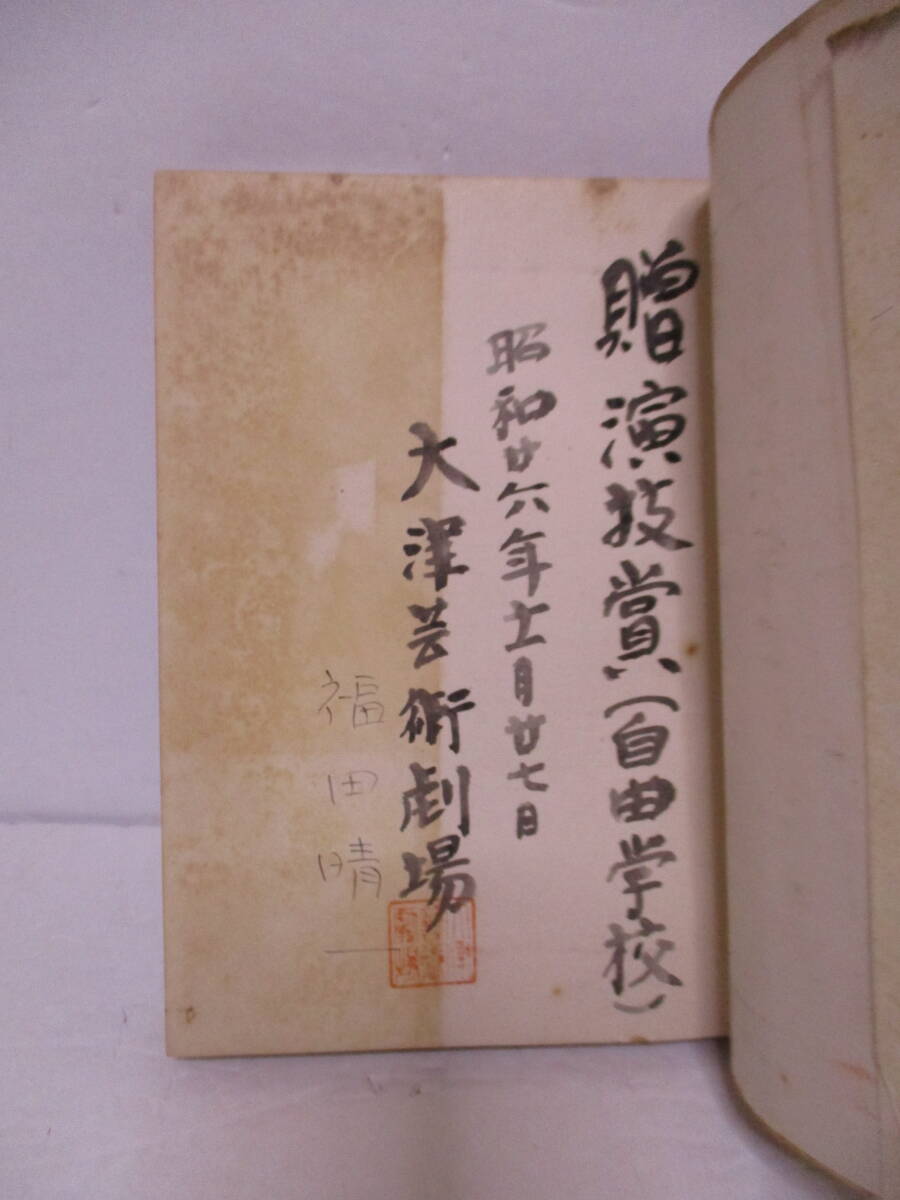 贈演技賞(自由学校)
昭和廿六年十一月廿七日
大津芸術劇場
福田晴一